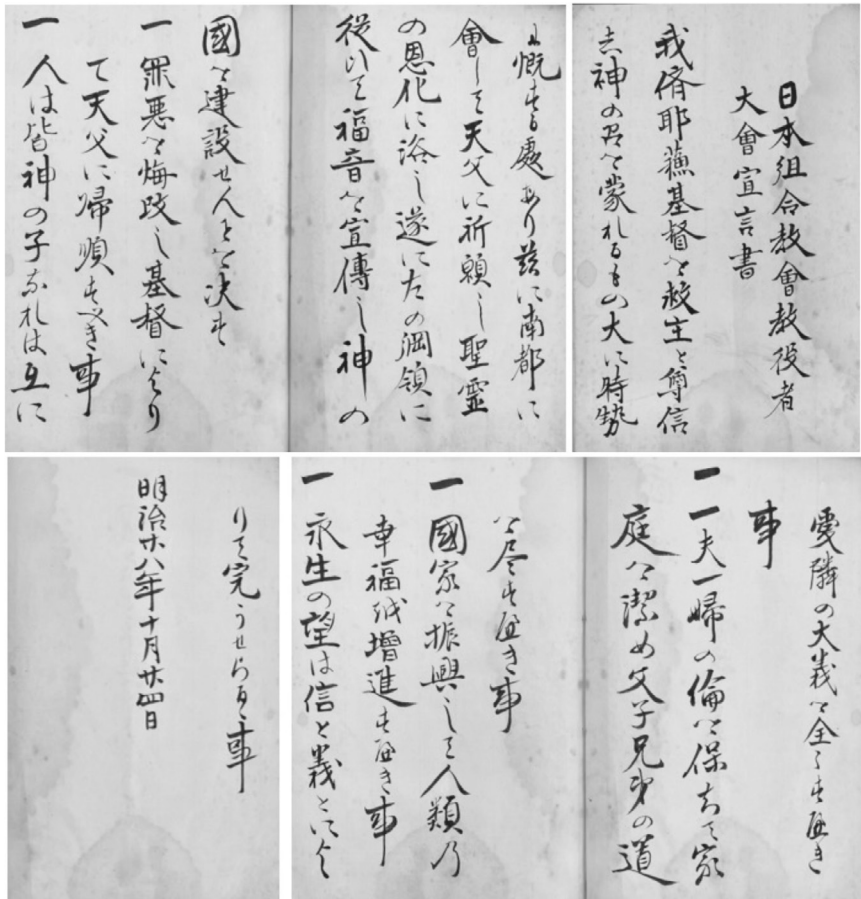 日本組合教會教役者
大會宣言書
我儕耶蘇基督を救主と尊信
し神の召を蒙れるもの大に時勢
に慨する處あり茲に南都に
會して天父に祈願し聖霊
の恩化に浴し遂に左の綱領に
従ひて福音を宣傳し神の
國を建設せんとを決す
一 罪悪を悔改し基督により
て天父に帰順すべき事
一 人は皆神の子なれは互に
愛隣の大義を全くすべき
事
一 一夫一婦の倫を保ちて家
庭を潔め父子兄弟の道
を尽すべき事
一 國家を振興して人類乃
幸福を増進すべき事
一 永生の望は信と義とによ
りて完うせらるゝ事
明治廿八年十月廿四日